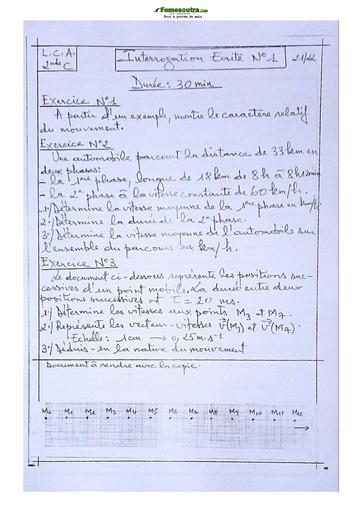 Fomesoutra.com
Docs à portée de main
L.C.A.
2nde C
Interrogation Ecrite N°1
21/22
Durée: 30min
Exercice N°1
A partir d'un exemple, montre le caractère relatif
du mouvement.
Exercice N°2
Une automobile parcourt la distance de 33 km en
deux phases:
- la 1ère phase, longue de 18 km de 8h à 8h12min
- la 2e phase à la vitesse constante de 60 km/h.
1°/ Détermine la vitesse moyenne de la 1ère phase en km/h
2°/ Détermine la durée de la 2e phase.
3°/ Détermine la vitesse moyenne de l'automobile sur
l'ensemble du parcours en km/h.
Exercice N°3
Le document ci-dessous représente les positions suc-
cessives d'un point mobile. La durée entre deux
positions successives est τ = 20 ms.
1°/ Détermine les vitesses aux points M3 et M7.
2°/ Représente les vecteur-vitesses V(M3) et V(M7).
Echelle: 1cm → 0,25 m.s-1
3°/ Déduis-en la nature du mouvement
Document à rendre avec la copie.
M0 M1 M2 M3 M4 M5 M6 M7 M8 M9 M10 M11 M12